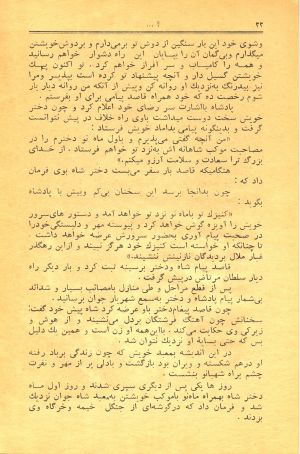 ۳۳ ... ؟
وشوی خود این بار سنگین از دوش تو برمیدارم و بردوش خویشتن
میگذارم وبی‌گمان آن را بپایان این راه دشوار خواهم رسانید
و همه را کامیاب و سر افراز خواهم کرد. تو اکنون پیك
خویشتن گسیل دار و آنچه پیشنهاد تو کرده است بپذیر ومرا
نیز بیدرنگ به‌نزدیك او روانه کن وپیش از آنکه من روانه دیار یار
شوم رخصت ده که خود همراه قاصد پیامی برای او بفرستم.
پادشاه بااشارت سر رضای خود اعلام کرد و چون دختر
خویش سخت دوست میداشت باوی راه خلاف در پیش نتوانست
گرفت و بدینگونه پیامی بداماد خویش فرستاد:
«من آنچه گفتی می‌پذیرم و باول ماه نو دخترم را در
مصاحبت موکب شاهانه اش به‌نزد تو خواهم فرستاد. از خدای
بزرگ ترا سعادت و سلامت آرزو میکنم.»
هنگامیکه قاصد بار سفر می‌بست دختر شاه بوی فرمان
داد که:
چون بدانجا برسد این سخنان بی‌کم وبیش با پادشاه
بگوید:
«کنیزك تو باماه نو نزد تو خواهد آمد و دستور های‌سرور
خویش را آویزه گوش خواهد کرد و پیوسته مهر و دلبستگی‌خودرا
در صحبت پیام آوری به‌حضور سرورش عرضه خواهد داشت
تا چنانکه او خواسته است کنیزك خود هرگز نبیند و ازاین رهگذر
غبار ملال بردیدگان نازنینش ننشیند.»
قاصد پیام شاه ودختر برسینه ثبت کرد و بار دیگر راه
دیار سلطان مرتاض درپیش گرفت.
پس از قطع مراحل و طی منازل بامصائب بسیار و شدائد
بی‌شمار پیام پادشاه و دختر به‌سمع شهریار جوان برسانید.
چون قاصد پیغام‌دختر باو عرضه کرد شاه پیش خود گفت:
سخنانش چون آهنگ فرشتگان بردل می‌نشیند و از هوش و
زیرکی وی حکایت می‌کند. بااین‌همه او زن است و همین یك دلیل
بس که حتی بسایهٔ او نزدیك نتوان شد.
در این اندیشه بمعبد خویش که چون زندگی برباد رفته
او درهم شکسته و ویران بود بازگشت و بادلی پر از مهر و نفرت
چشم براه شهبانو بنشست.
روز ها یکی پس از دیگری سپری شدند و روز اول ماه
دختر شاه بهمراه ماه‌نو باموکب خویشتن به‌معبد شاه جوان نزدیك
شد و فرمان داد که درگوشه‌ای از جنگل خیمه وخرگاه وی
بزدند.